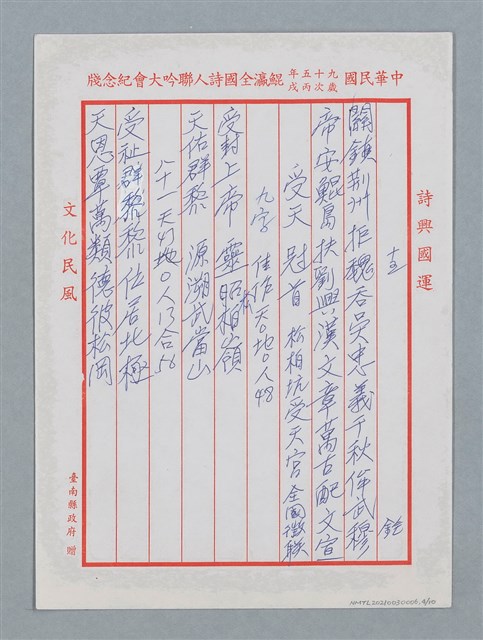 中華民國九十五年歲次丙戌鯤瀛全國詩人聯吟大會紀念牋
詩興國運
文化民風
臺南縣政府 贈
關鎖荊州拒魏吞吳忠義千秋侔武穆
帝安鯤島扶劉興漢文章萬古配文宣
受天 冠首 松柏坑受天宮全國徵聯
九字 佳作天0地0人48
受封上帝 靈昭柏嶺
天佑群黎 源溯武當山
八十一 天47地0人13合56
受祉群黎黎位居北極
天恩覃萬類德被松岡
NMTL20210030006.4/10